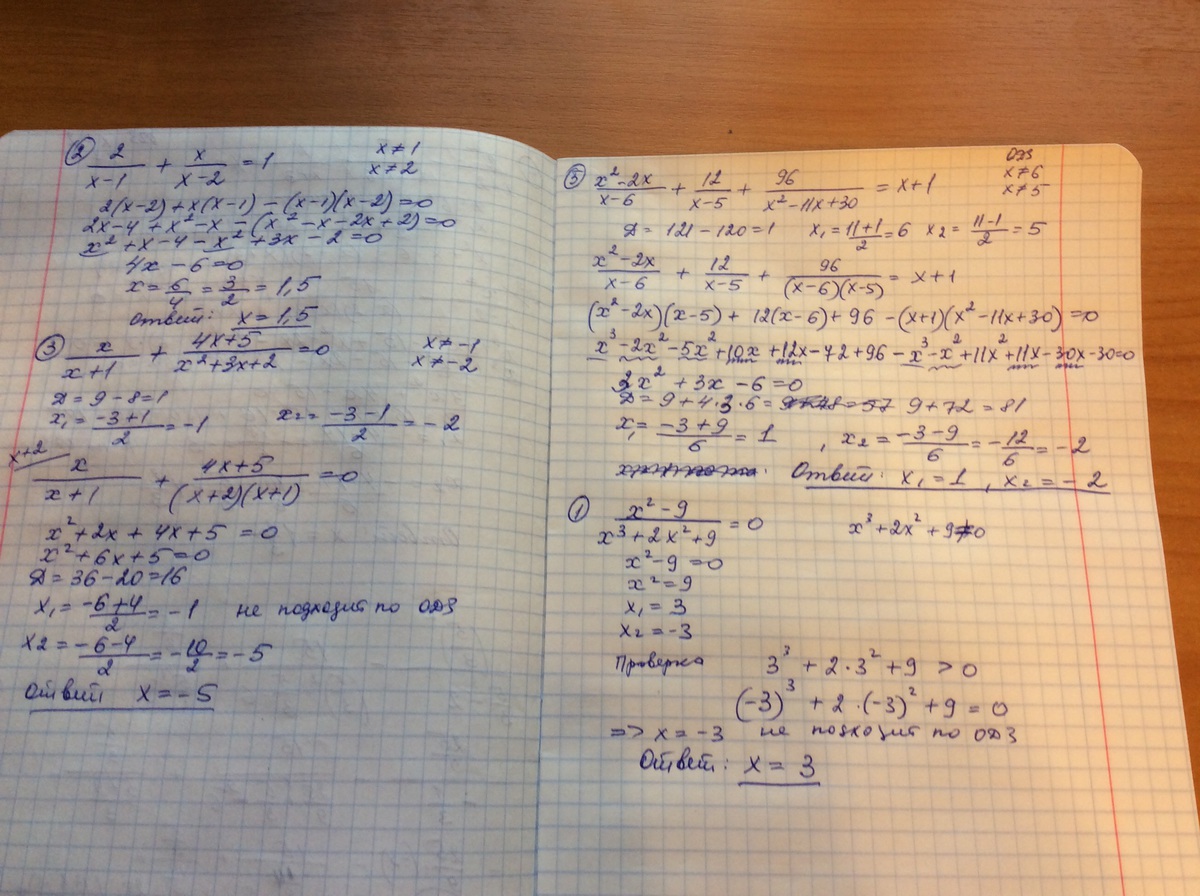 ② 2/(x-1) + x/(x-2) = 1 x≠1
x≠2
2(x-2)+x(x-1)-(x-1)(x-2)=0
2x-4+x²-x-(x²-x-2x+2)=0
x²+x-4-x²+3x-2=0
4x-6=0
x=6/4=3/2=1,5
Ответ: x=1,5
③ x/(x+1) + (4x+5)/(x²+3x+2)=0 x≠-1
x≠-2
D=9-8=1
x₁=(-3+1)/2=-1 x₂=(-3-1)/2=-2
x+2
x/(x+1) + (4x+5)/((x+2)(x+1))=0
x²+2x+4x+5=0
x²+6x+5=0
D=36-20=16
x₁=(-6+4)/2=-1 не подходит по ОДЗ
x2=(-6-4)/2=-10/2=-5
Ответ x=-5
ОДЗ
⑤ (x²-2x)/(x-6) + 12/(x-5) + 96/(x²-11x+30) = x+1 x≠6
x≠5
D=121-120=1 x₁=(11+1)/2=6 x₂=(11-1)/2=5
(x²-2x)/(x-6) + 12/(x-5) + 96/((x-6)(x-5)) = x+1
(x²-2x)(x-5)+12(x-6)+96-(x+1)(x²-11x+30)=0
x³-2x²-5x²+10x+12x-72+96-x³-x²+11x²+11x-30x-30=0
3x²+3x-6=0
D=9+4·3·6=9+48=57 9+72=81
x₁=(-3+9)/6=1, x₂=(-3-9)/6=-12/6=-2
Ответ: x₁=1, x₂=-2
① (x²-9)/(x³+2x²+9)=0 x³+2x²+9≠0
x²-9=0
x²=9
x₁=3
x₂=-3
Проверка 3³+2·3²+9>0
(-3)³+2·(-3)²+9=0
=> x=-3 не подходит по ОДЗ
Ответ: x=3